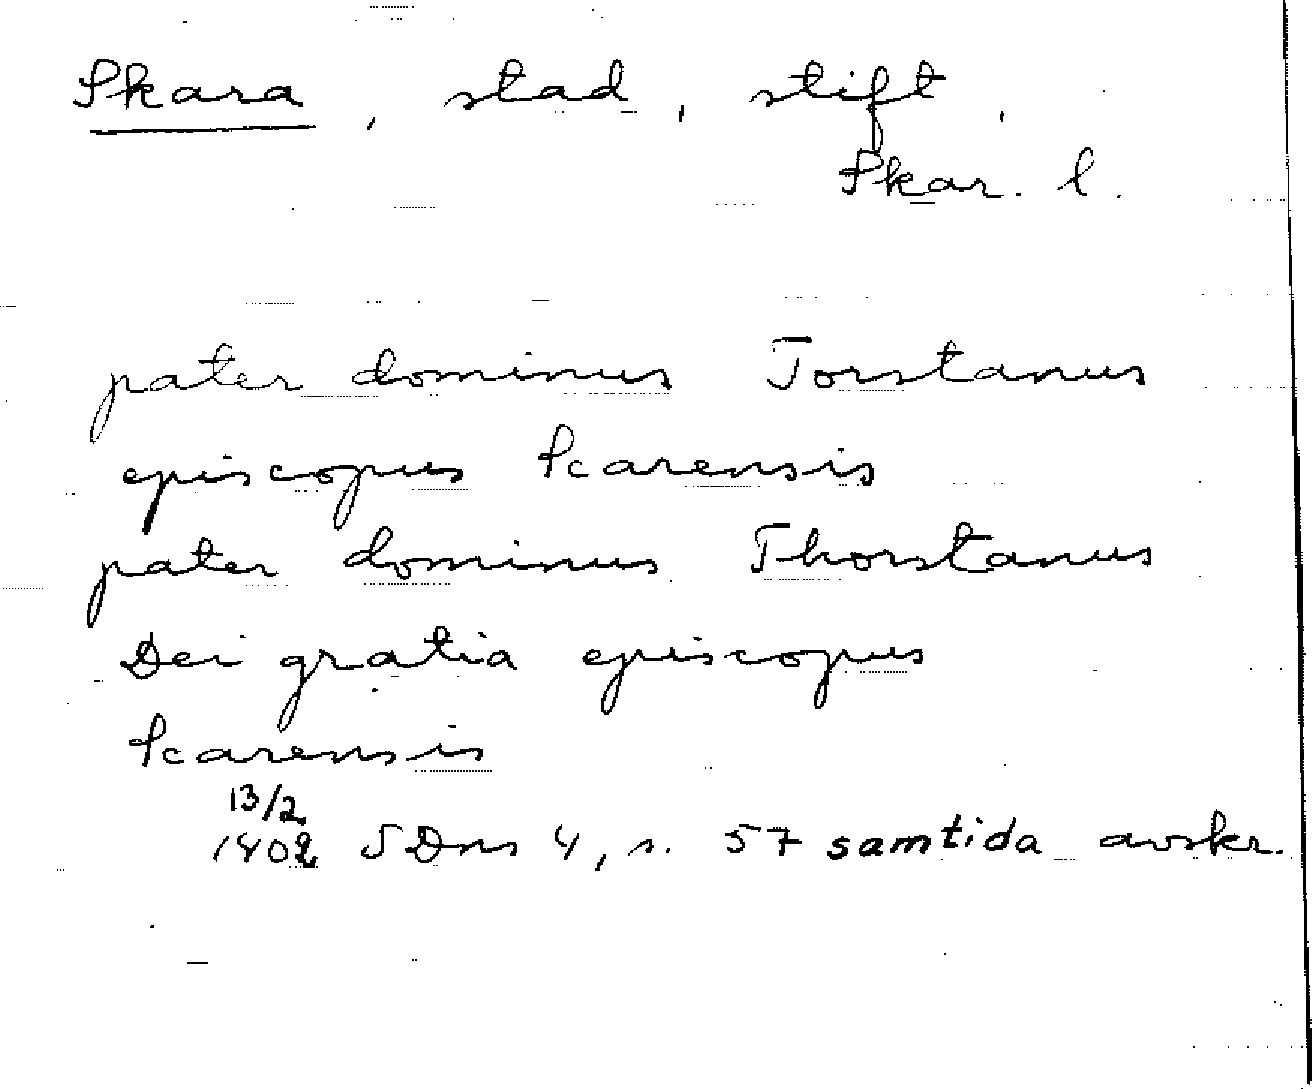 Skara, stad, stift,
Skar. l.
pater dominus Torstanus
episcopus Scarensis
pater dominus Thorstanus
Dei gratia episcopus
Scarensis
13/2
1402 SDns 4, s. 57 samtida avskr.